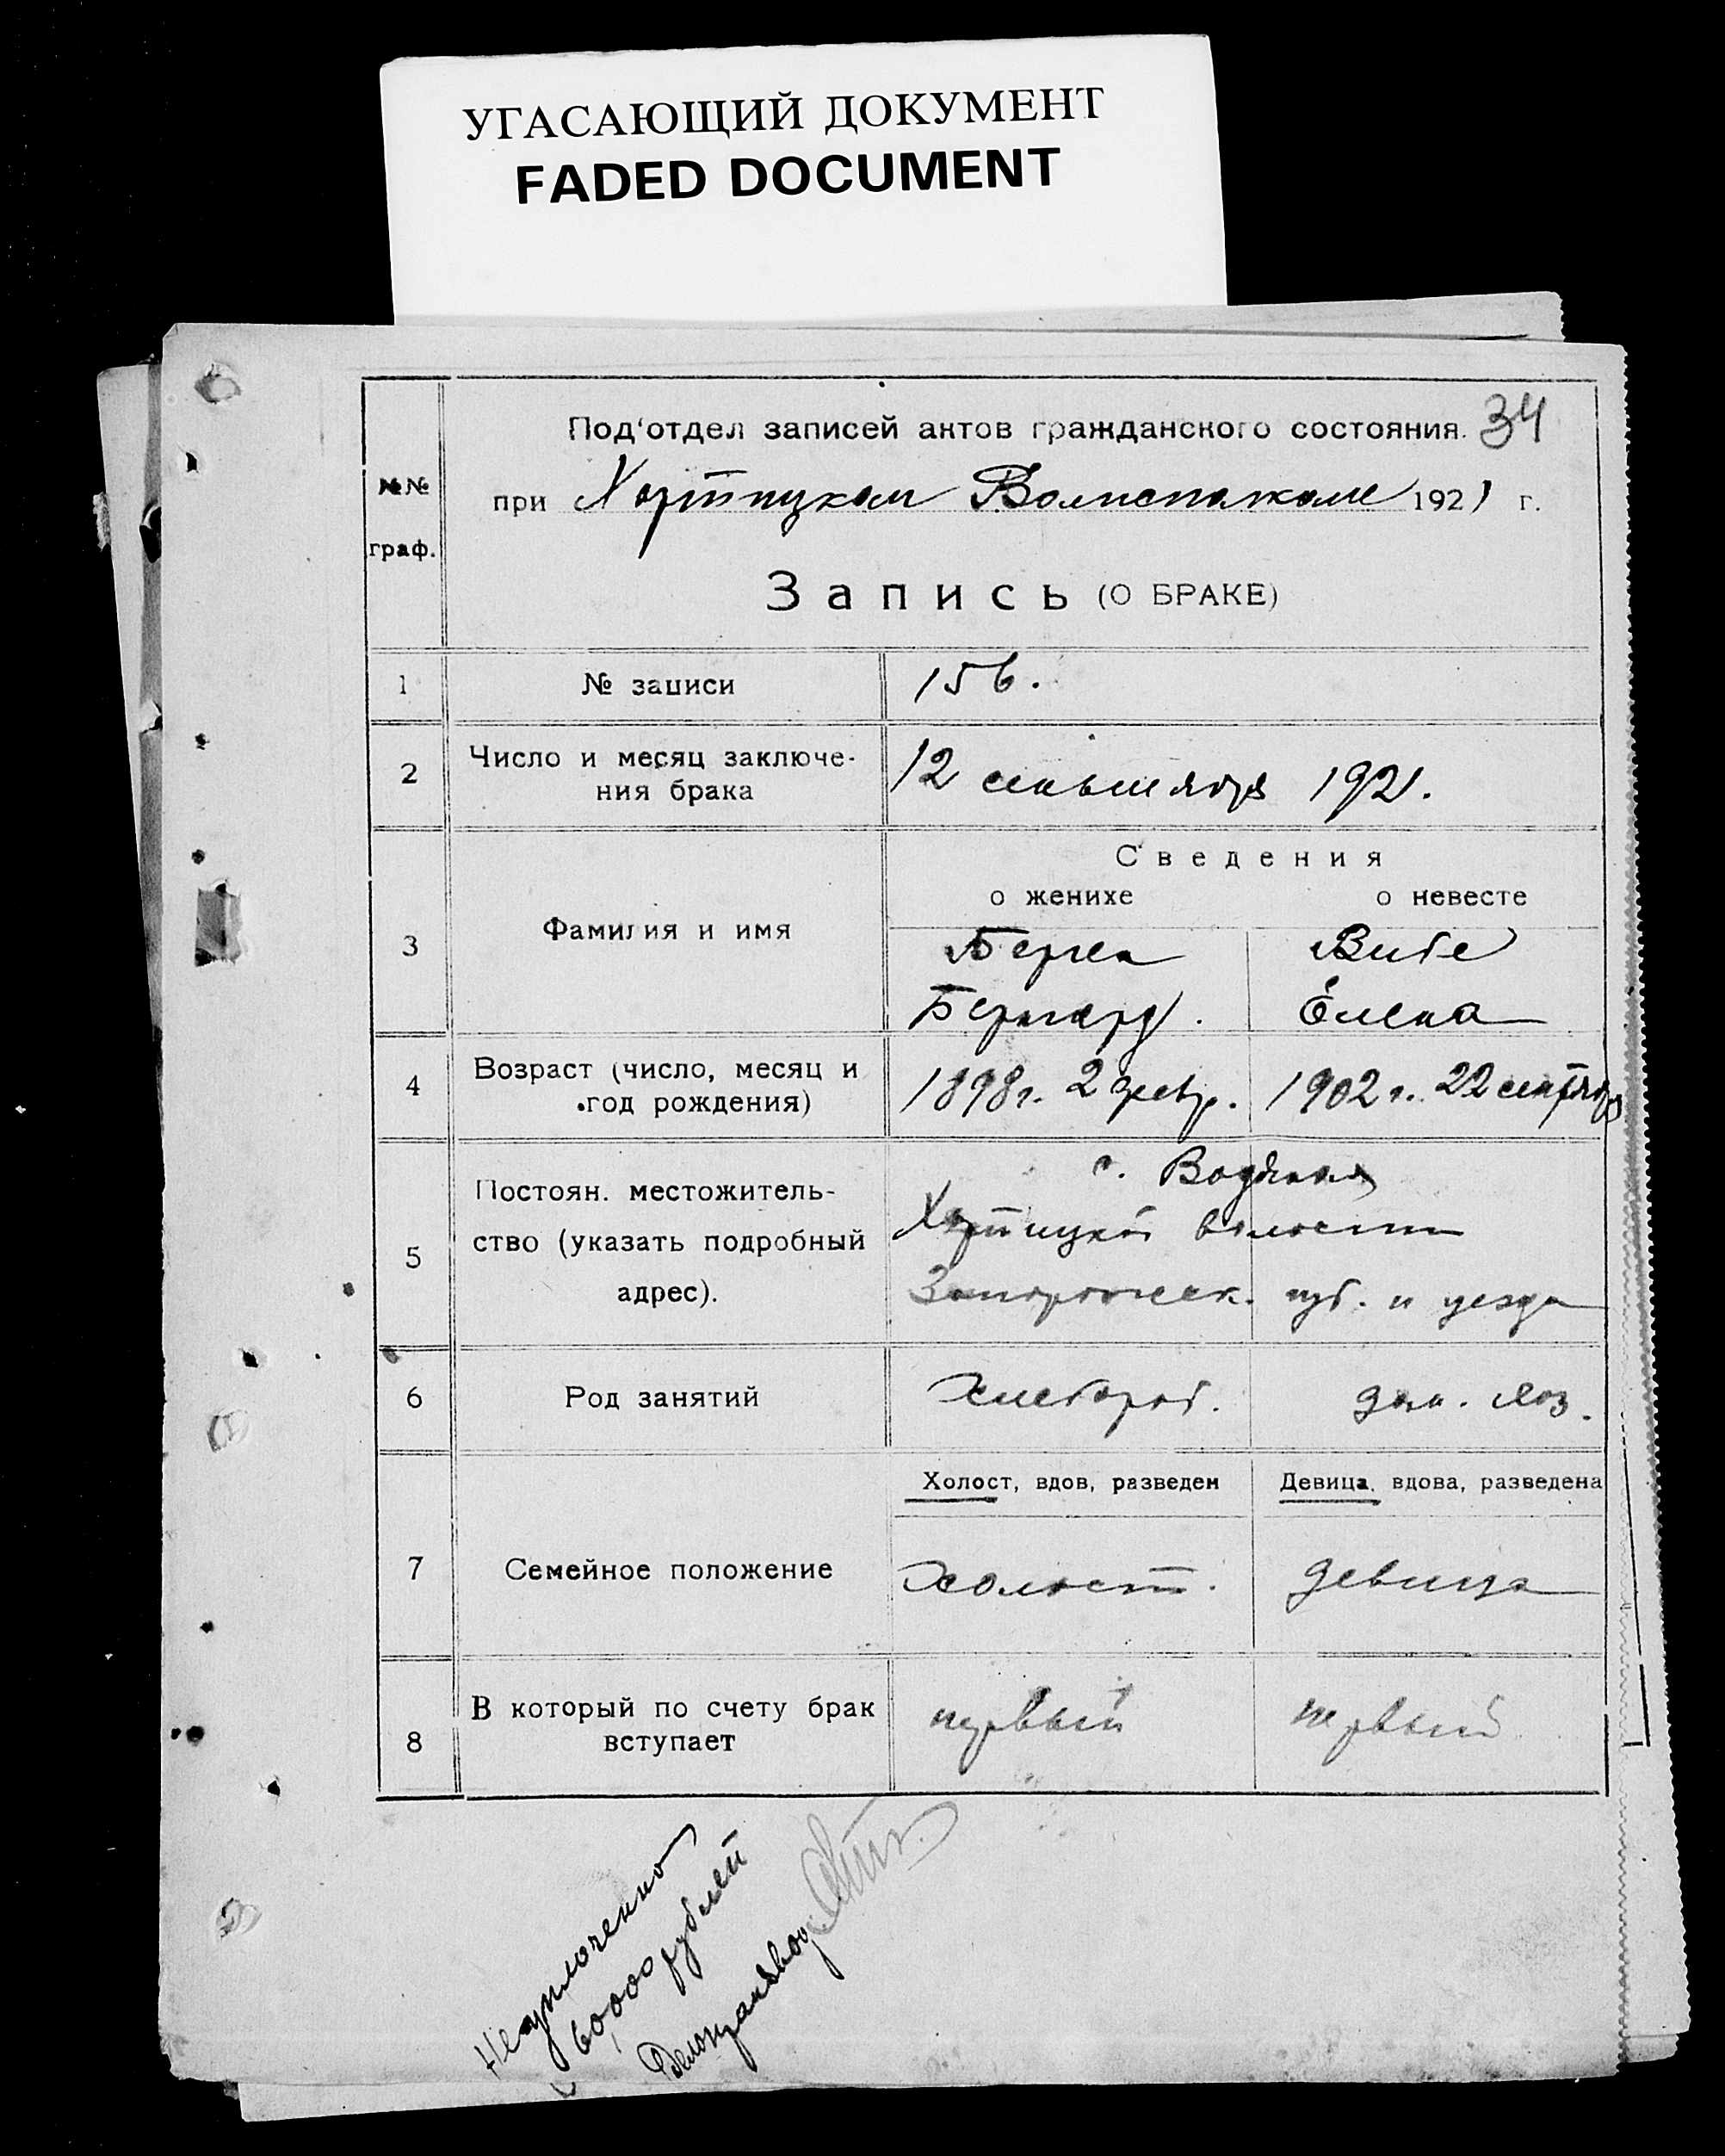 УГАСАЮЩИЙ ДОКУМЕНТ
FADED DOCUMENT
Под'отдел записей актов гражданского состояния. 34
№№ граф.
при Хортицком Волисполкоме 1921 г.
Запись (О БРАКЕ)
1 № записи 156.
2 Число и месяц заключе-
ния брака 12 сентября 1921.
Сведения
о женихе о невесте
3 Фамилия и имя
Берген Вибе
Бернгард. Елена
4 Возраст (число, месяц и
год рождения) 1898 г. 2 февр. 1902 г. 22 сентября
5 Постоян. местожитель-
ство (указать подробный
адрес).
с. Водяная
Хортицкой волости
Запорожск. губ. и уезда
6 Род занятий Хлебороб. дом. хоз.
Холост, вдов, разведен Девица, вдова, разведена
7 Семейное положение холост. девица
8 В который по счету брак
вступает первый первый
Неуплоченно
60,000 рублей
Делопроизвод.